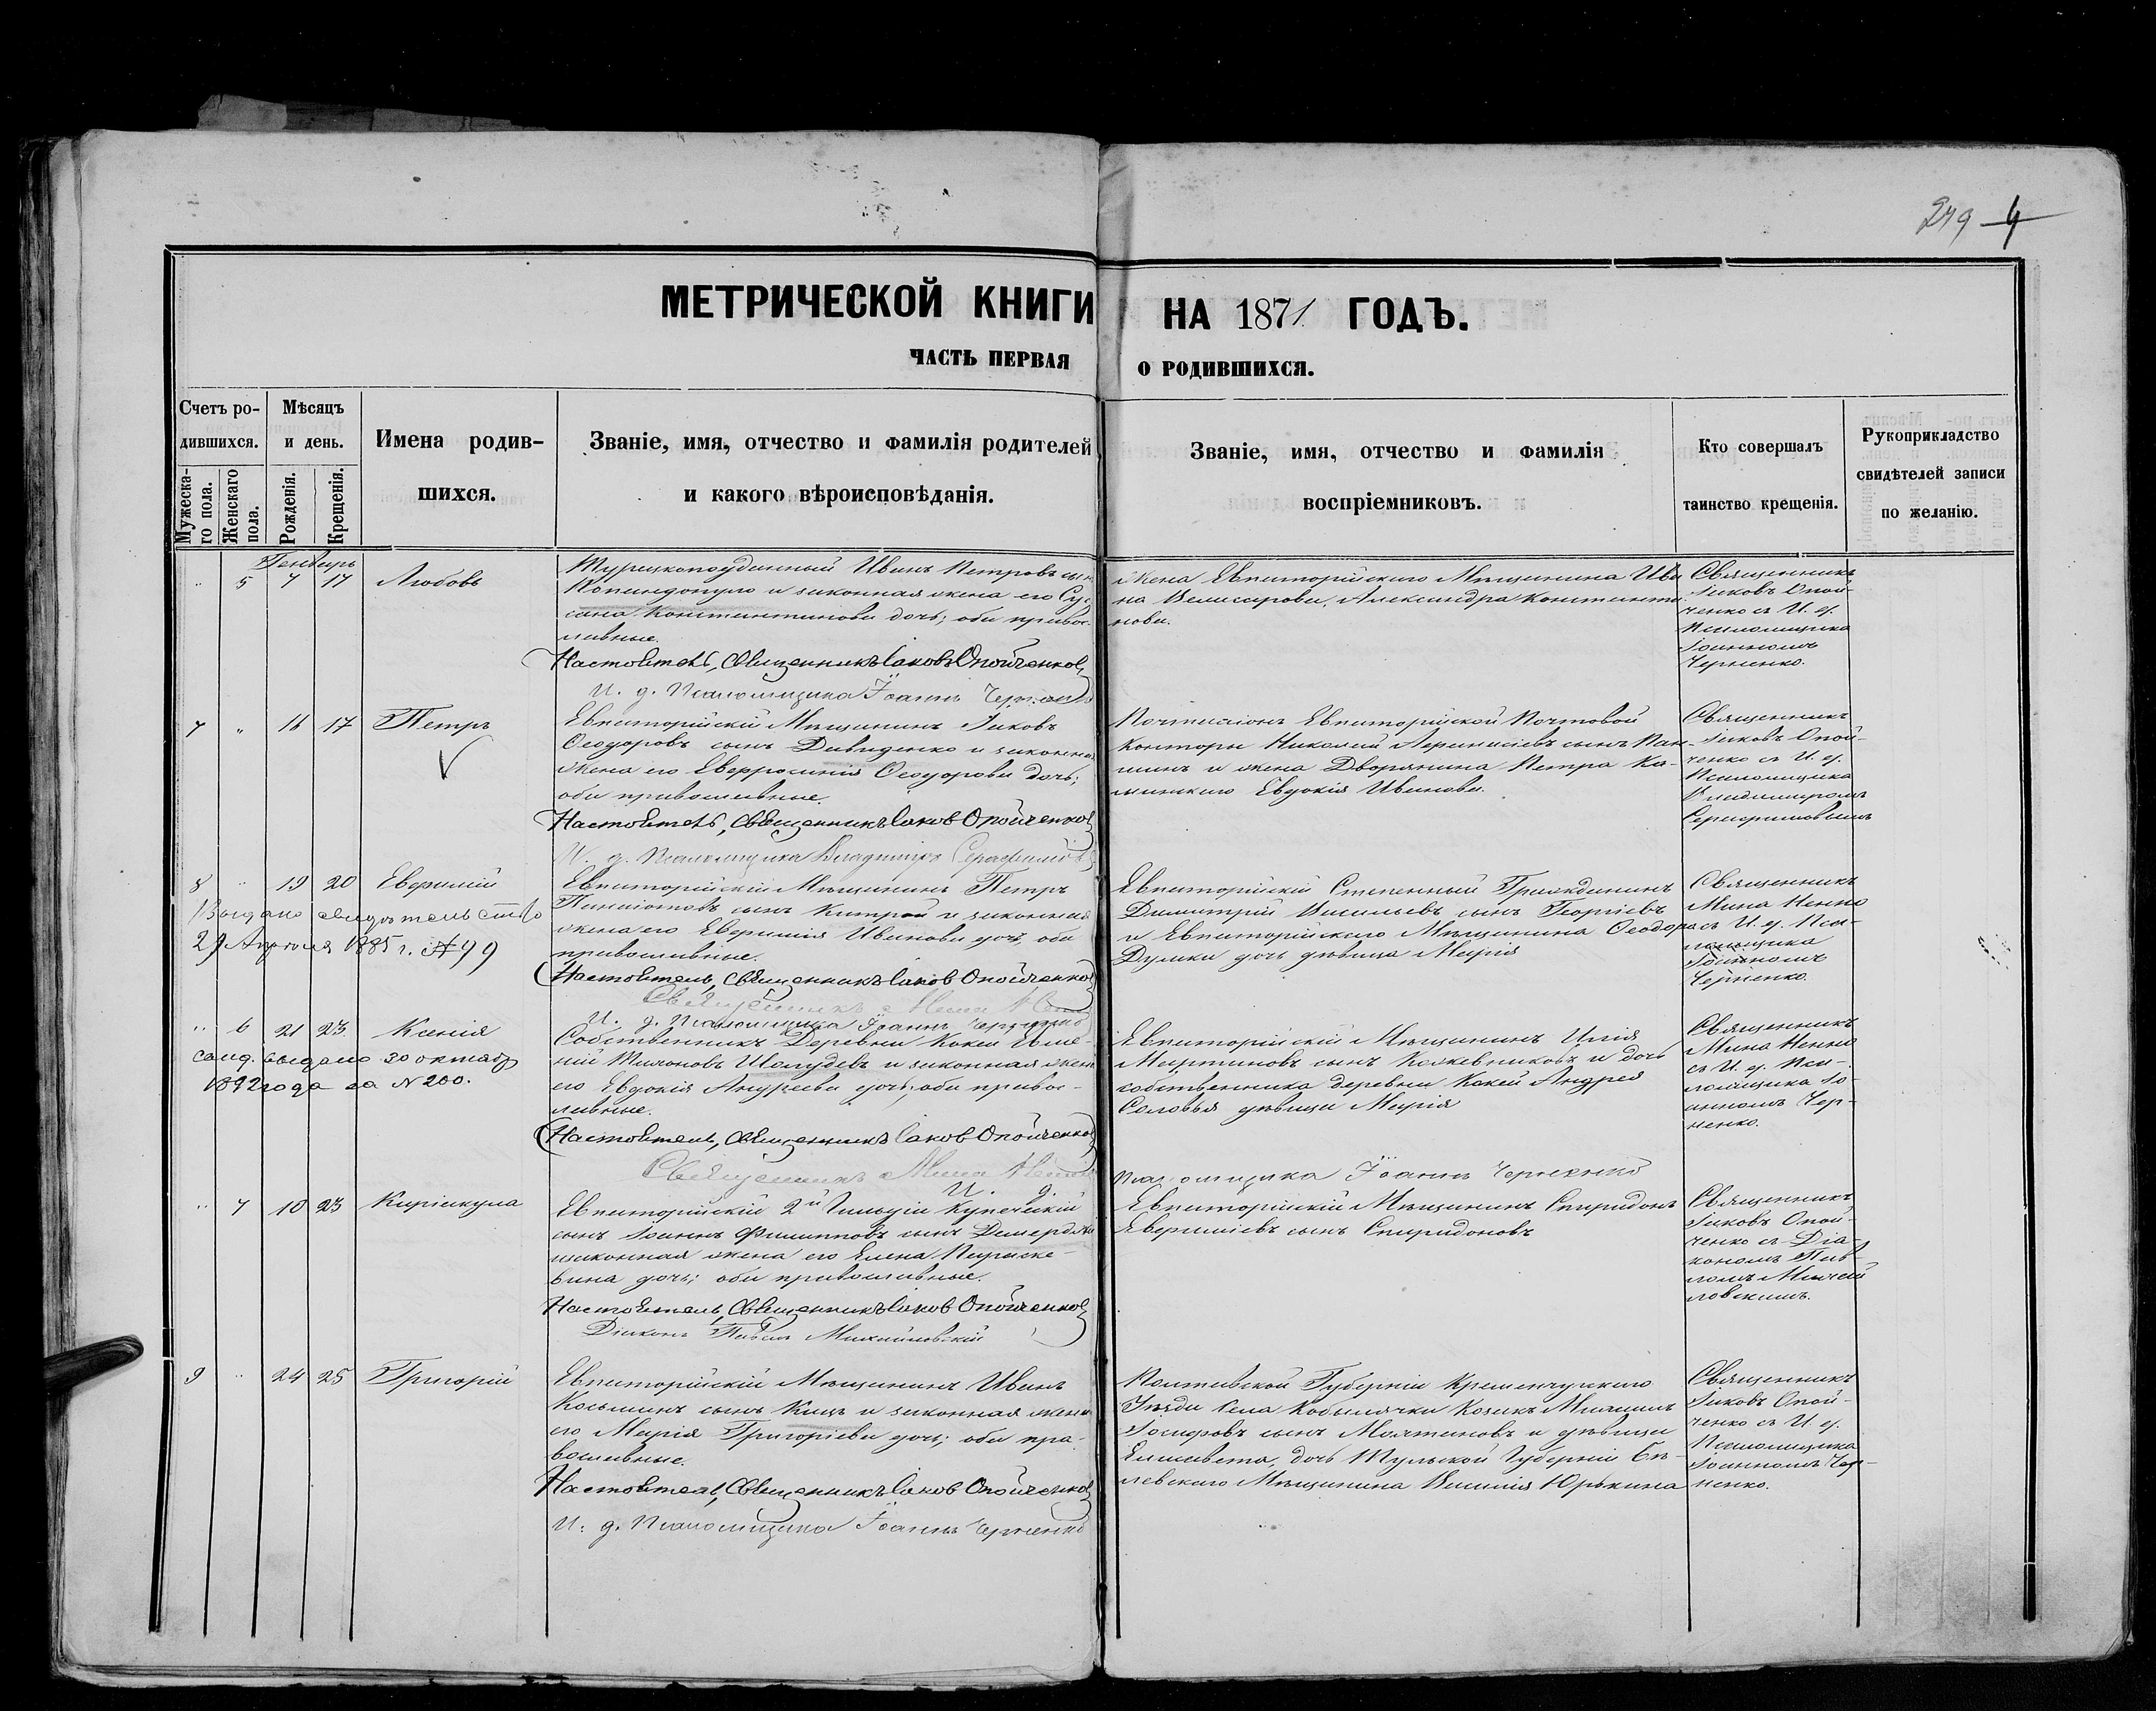 249 4
МЕТРИЧЕСКОЙ КНИГИ НА 1871 ГОДЪ.
ЧАСТЬ ПЕРВАЯ О РОДИВШИХСЯ.
Счетъ родившихся.
Мужеска-го пола.
Женскаго пола.
Мѣсяцъ и день.
Рожденія.
Крещенія.
Имена родив-
шихся.
Званіе, имя, отчество и фамилія родителей
и какого вѣроисповѣданія.
Званіе, имя, отчество и фамилія
воспріемниковъ.
Кто совершалъ
таинство крещенія.
Рукоприкладство
свидѣтелей записи
по желанію.
Генварь
" 5 7 17 Любовь
Турецкоподданный Иванъ Петровъ сынъ
Попандопуло и законная жена его Су-
сана Константинова дочь; оба правос-
лавные.
Настоятель, Священникъ Іаковъ Опойченко
И. д. Псаломщика Іоаннъ Черненко
жена Евпаторійскаго Мѣщанина Ива-
на Велисарова, Александра Константи-
нова.
Священникъ
Іаковъ Опой-
ченко съ И. д.
Псаломщика
Іоанномъ
Черненко.
7 " 16 17 Петръ
Евпаторійскій Мѣщанинъ Іаковъ
Ѳеодоровъ сынъ Давиденко и законная
жена его Евфросинія Ѳеодорова дочь;
оба православные.
Настоятель, Священникъ Іаковъ Опойченко
И. д. Псаломщика Владиміръ Серафимовъ
Почталіонъ Евпаторійской Почтовой
Конторы Николай Афанасіевъ сынъ Пан-
шинъ и жена Дворянина Петра Ка-
минскаго Евдокія Иванова.
Священникъ
Іаковъ Опой-
ченко съ И. д.
Псаломщика
Владиміромъ
Серафимовымъ
8 " 19 20 Евфимій
Выдано свидѣтельство
29 Апрѣля 1885 г. № 99
Евпаторійскій Мѣщанинъ Петръ
сынъ и законная
жена его Евфимія Иванова дочь, оба
православные.
Настоятель, Священникъ Іаковъ Опойченко
Священникъ Мина Ненно
И. д. Псаломщика Іоаннъ Черненко
Евпаторійскій Степенный Гражданинъ
Димитрій Васильевъ сынъ Георгіевъ
и Евпаторійскаго Мѣщанина Ѳеодора
Дулики дочь дѣвица Марія
Священникъ
Мина Ненно
съ И. д. Пса-
ломщика
Іоанномъ
Черненко.
" 6 21 23 Ксенія
свид. выдано 30 октябр
1892 года за № 200.
Собственникъ Деревни Кокей Евме-
ній Шелудевъ и законная жена
его Евдокія Андреева дочь; оба правос-
лавные.
Настоятель, Священникъ Іаковъ Опойченко
Священникъ Мина Ненно
И. д. Псаломщика Іоаннъ Черненко
Евпаторійскій Мѣщанинъ Илія
Мартиновъ сынъ Кожевниковъ и дочь
собственника деревни Кокей Андрея
Соловья дѣвица Марія
Священникъ
Мина Ненно
съ И. д. Пса-
ломщика Іо-
анномъ Чер-
ненко.
" 7 10 23 Киріакула
Евпаторійскій 2й Гильдіи Купеческій
сынъ Іоаннъ Филипповъ сынъ Демерджи
и законная жена его Елена Параске-
вина дочь; оба православные.
Настоятель, Священникъ Іаковъ Опойченко
Діаконъ Павелъ Михайловскій
Евпаторійскій Мѣщанинъ Спиридонъ
Евфиміевъ сынъ Спиридоновъ
Священникъ
Іаковъ Опой-
ченко съ Діа-
кономъ Пав-
ломъ Михай-
ловскимъ.
9 " 24 25 Григорій
Евпаторійскій Мѣщанинъ Иванъ
Косьминъ сынъ Кицъ и законная жена
его Марія Григоріева дочь; оба пра-
вославные.
Настоятель, Священникъ Іаковъ Опойченко
И. д. Псаломщика Іоаннъ Черненко
Полтавской Губерніи Кременчугскаго
Уѣзда Села Кобылячки Козакъ Михаилъ
Іосифовъ сынъ Молтяновъ и дѣвица
Елисавета, дочь Тульской Губерніи Бѣ-
левскаго Мѣщанина Василія Юрькина
Священникъ
Іаковъ Опой-
ченко съ И. д.
Псаломщика
Іоанномъ Чер-
ненко.